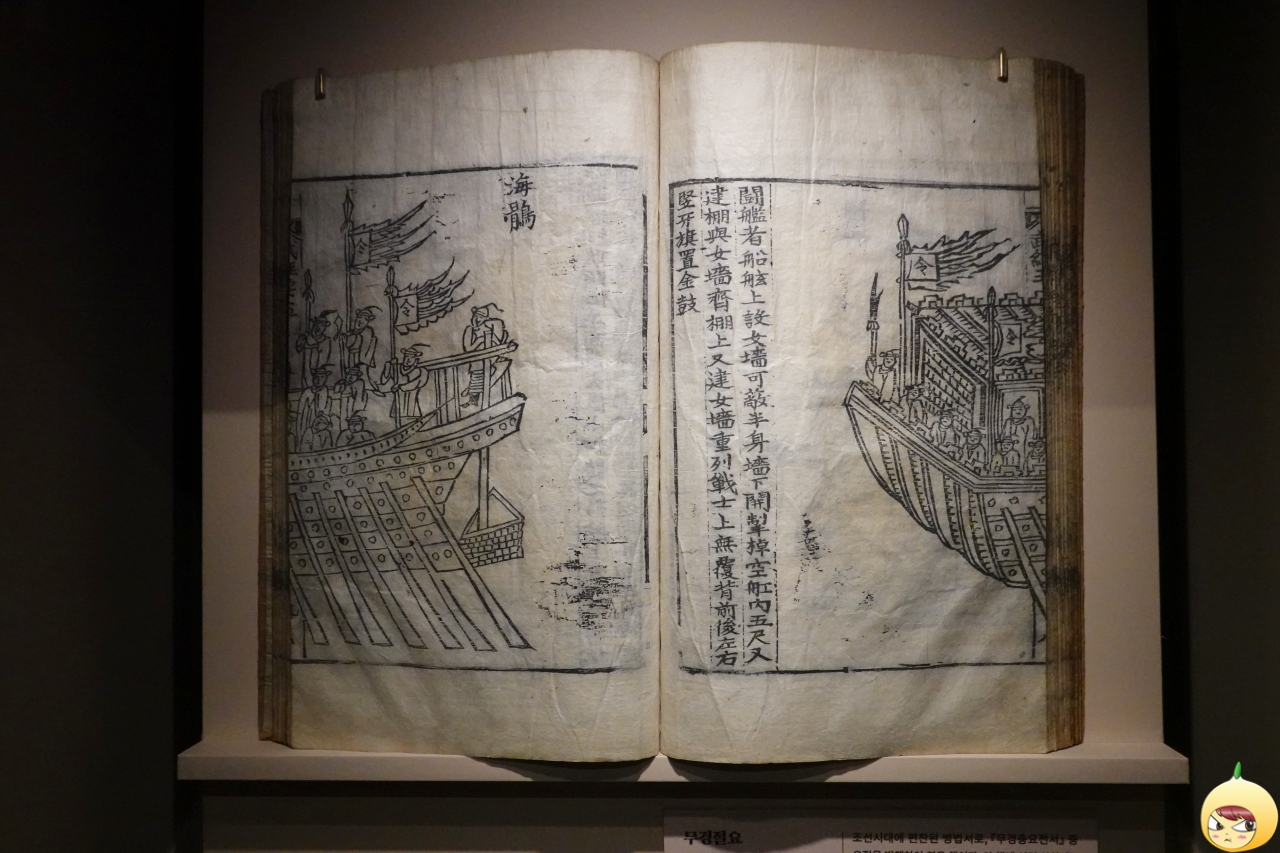 令
鬪艦者船舷上設女墻可蔽半身墻下開掣棹空舡内五尺又
建棚與女墻齊棚上又建女墻重列戰士上無覆背前後左右
竪牙旗置金鼓
海鶻
令
令
무경절요
조선시대에 편찬된 병법서로, 『무경총요전서』 중